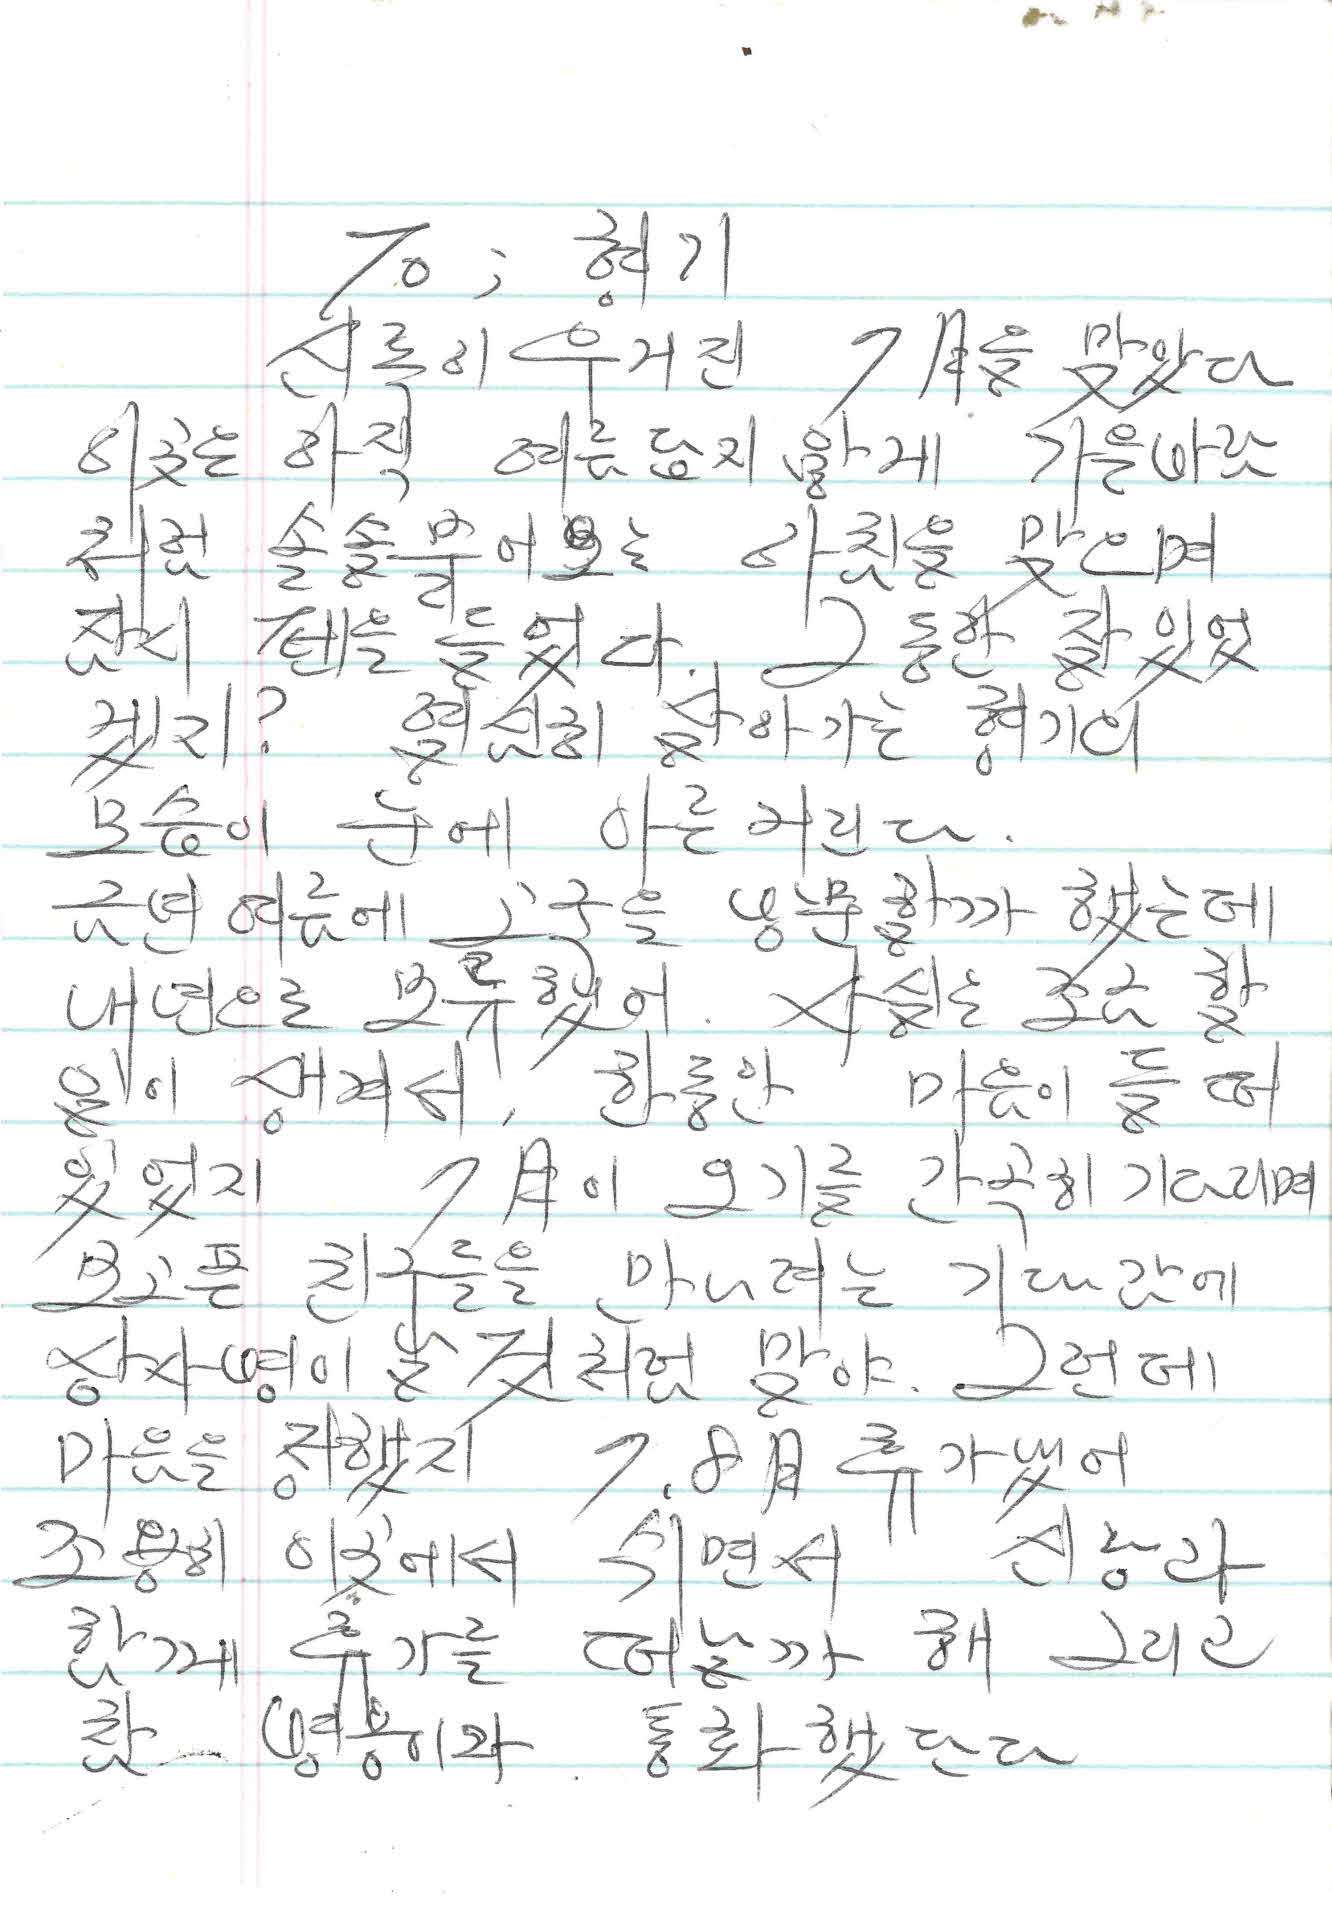 To ; 형기
신록이 우거진 7月을 맞았다
이곳은 아직 여름답지 않게 가을바람
처럼 솔솔 불어오는 아침을 맞으며
잠시 펜을 들었다. 그동안 잘있었
겠지? 열심히 살아가는 형기의
모습이 눈에 아른거린다.
금년 여름에 고국을 방문할까 했는데
내년으로 보류했어. 사실은 조금 할
일이 생겨서, 한동안 마음이 들떠
있었지 7月이 오기를 간곡히 기다리며
보고픈 친구들을 만나려는 기대감에
상사병이 날 것처럼 말야. 그런데
마음을 정했지 7.8月 휴가냈어
조용히 이곳에서 쉬면서 신랑과
함께 휴가를 떠날까 해 그리고
참 병용이와 통화했단다